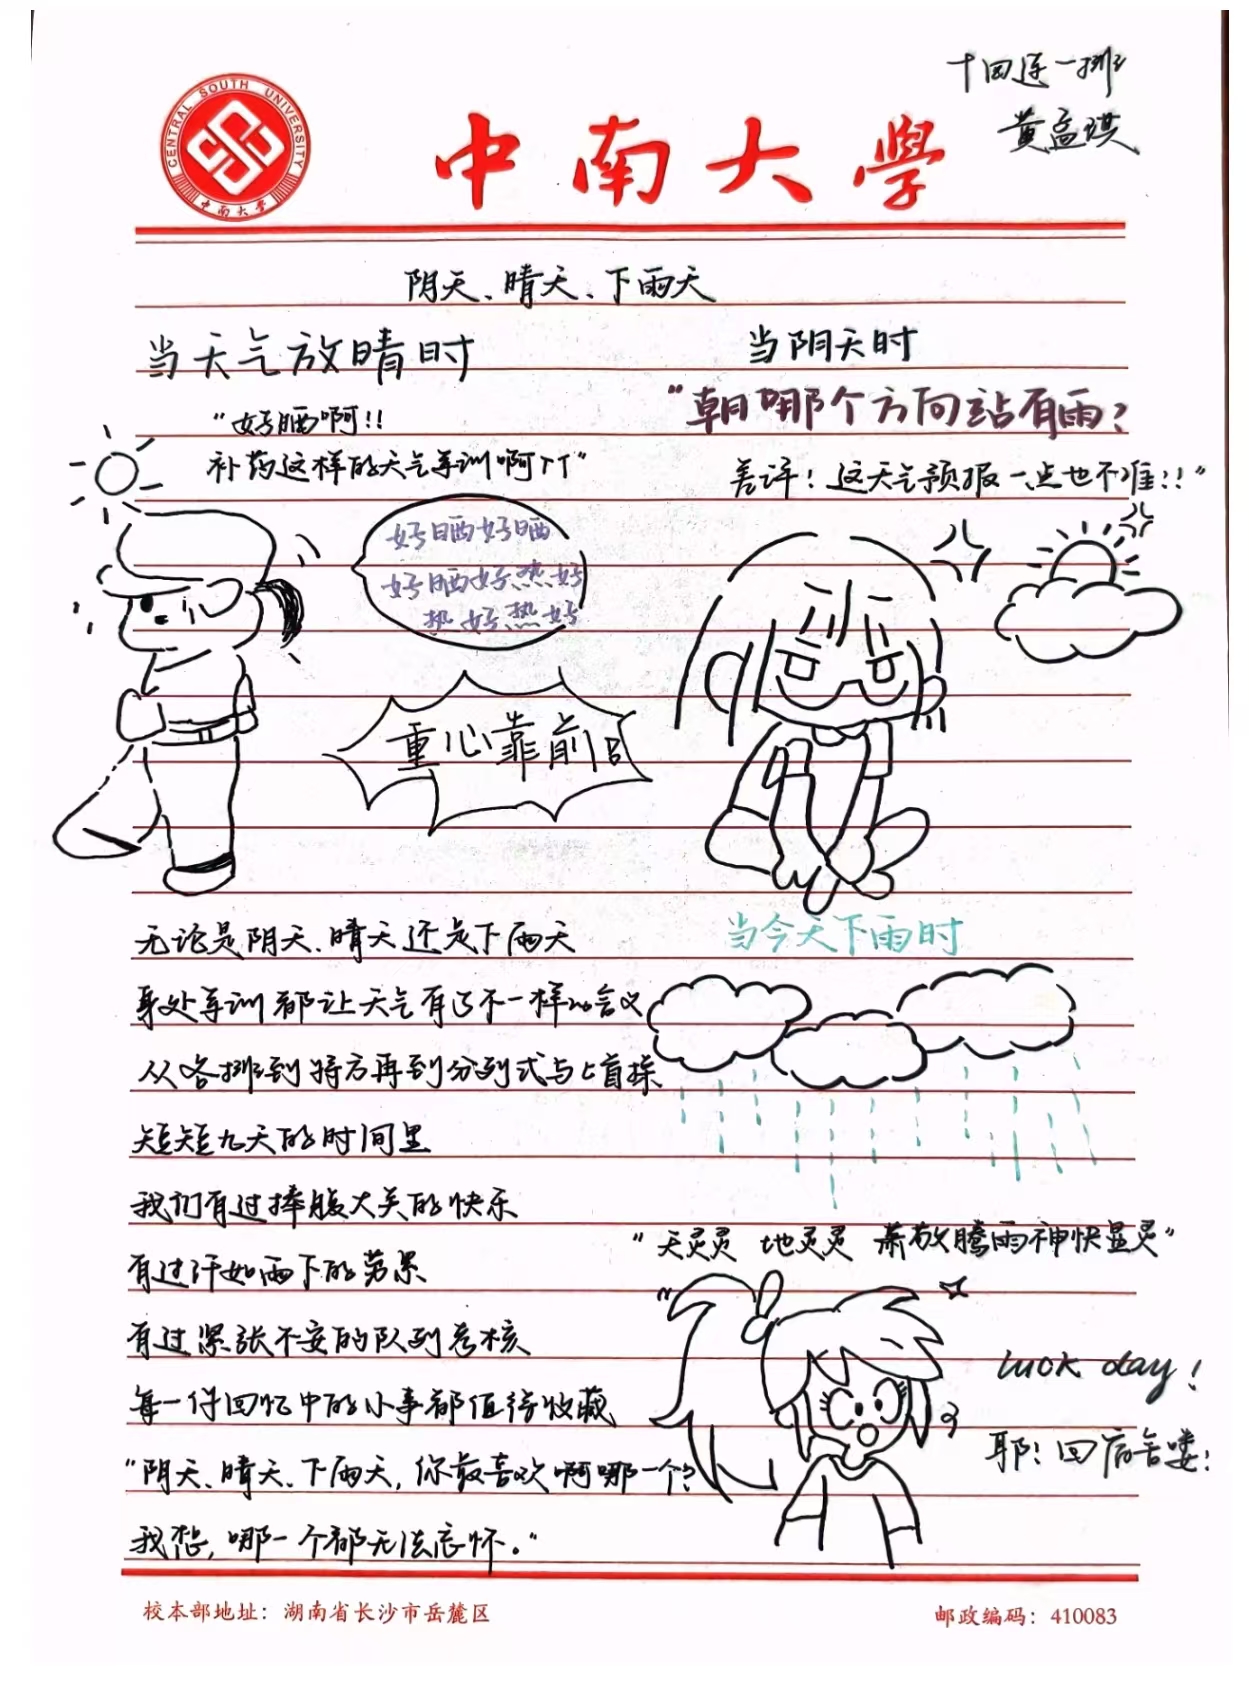 十四连一排
黄孟琪
CENTRAL SOUTH UNIVERSITY
中南大学
中南大學
阴天、晴天、下雨天
当天气放晴时
"好晒啊!!
补药这样的天气军训啊TT"
好晒好晒
好晒好热好
热好热好
重心靠前
当阴天时
"朝哪个方向站有雨?
差评!这天气预报一点也不准!!"
当今天下雨时
"天灵灵 地灵灵 萧敬腾雨神快显灵"
luck day!
耶!回宿舍喽!
无论是阴天、晴天还是下雨天
身处军训都让天气有了不一样的含义
从各排到特方再到分列式与上首操
短短九天的时间里
我们有过捧腹大笑的快乐
有过汗如雨下的劳累
有过紧张不安的队列考核
每一件回忆中的小事都值得收藏
"阴天、晴天、下雨天,你最喜欢啊哪一个?
我想,哪一个都无法忘怀。"
校本部地址:湖南省长沙市岳麓区
邮政编码:410083